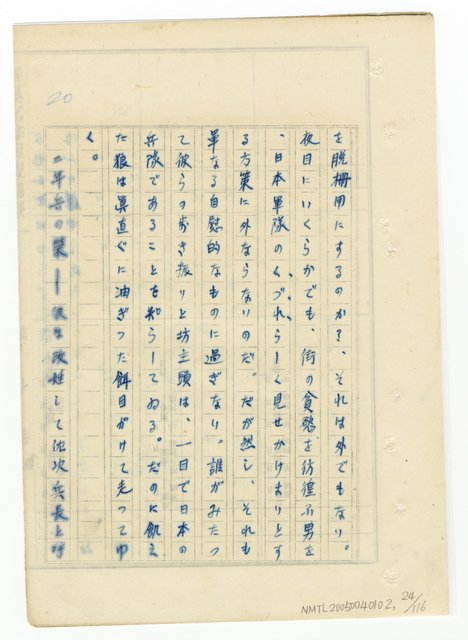 20
を脱柵用にするのか？、それは外でもない。
夜目にいくらかでも、街の貧鶏を彷徨ふ男を
、日本軍隊のくづれらしく見せかけまりとす
る方策に外ならないのだ。だが然し、それも
単なる自慰的なものに過ぎない。誰がみたっ
て彼らの歩き振りと坊主頭は、一日で日本の
兵隊であることを知らしてゐる。だのに飢え
た狼は真直ぐに油ぎった餌目がけて走ってゆ
く。
二年兵の栄――彼は改姓して佐次兵長と呼
NMTL20050040102, 24/116